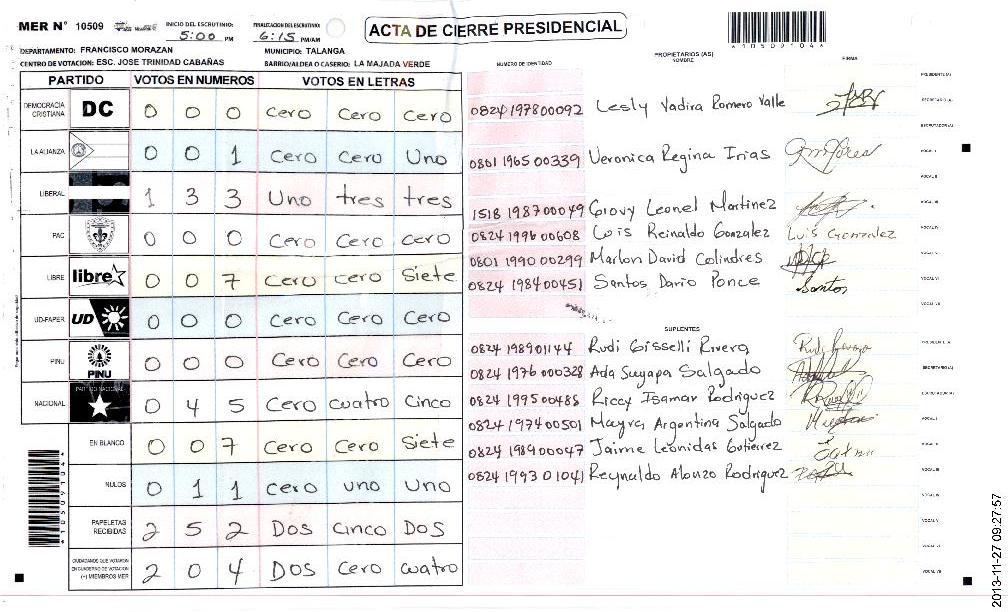 MER N° 10509
INICIO DEL ESCRUTINIO: 5:00 PM
FINALIZACION DEL ESCRUTINIO: 6:15 PM/AM
ACTA DE CIERRE PRESIDENCIAL
*10509104*
DEPARTAMENTO: FRANCISCO MORAZAN
MUNICIPIO: TALANGA
CENTRO DE VOTACION: ESC. JOSE TRINIDAD CABAÑAS
BARRIO/ALDEA O CASERIO: LA MAJADA VERDE
PARTIDO VOTOS EN NUMEROS VOTOS EN LETRAS
DEMOCRACIA CRISTIANA DC 0 0 0 Cero Cero Cero
LA ALIANZA 0 0 1 Cero Cero Uno
LIBERAL 1 3 3 Uno tres tres
PAC 0 0 0 Cero Cero Cero
LIBRE libre 0 0 7 Cero Cero Siete
UD-FAPER UD 0 0 0 Cero Cero Cero
PINU PINU 0 0 0 Cero Cero Cero
NACIONAL 0 4 5 Cero Cuatro Cinco
EN BLANCO 0 0 7 Cero Cero Siete
NULOS 0 1 1 Cero uno Uno
PAPELETAS RECIBIDAS 2 5 2 Dos Cinco Dos
CIUDADANOS QUE VOTARON EN CUADERNO DE VOTACION (+) MIEMBROS MER 2 0 4 Dos Cero Cuatro
*10509104*
NUMERO DE IDENTIDAD PROPIETARIOS (AS) NOMBRE FIRMA
0824 1978 00092 Lesly Yadira Romero Valle
0801 1965 00339 Veronica Regina Irias
1518 1987 00049 Giovy Leonel Martinez
0824 1996 00608 Luis Reinaldo Gonzalez Luis Gonzalez
0801 1990 00299 Marlon David Colindres
0824 1984 00451 Santos Dario Ponce Santos
SUPLENTES
0824 1989 01144 Rudi Gisselli Rivera
0824 1976 000328 Ada Suyapa Salgado
0824 1995 00488 Riccy Isamar Rodriguez
0824 1974 00501 Mayra Argentina Salgado
0824 1989 00047 Jaime Leonidas Gutierrez
0824 1993 01041 Reynaldo Alonzo Rodriguez
2013-11-27 09:27:57